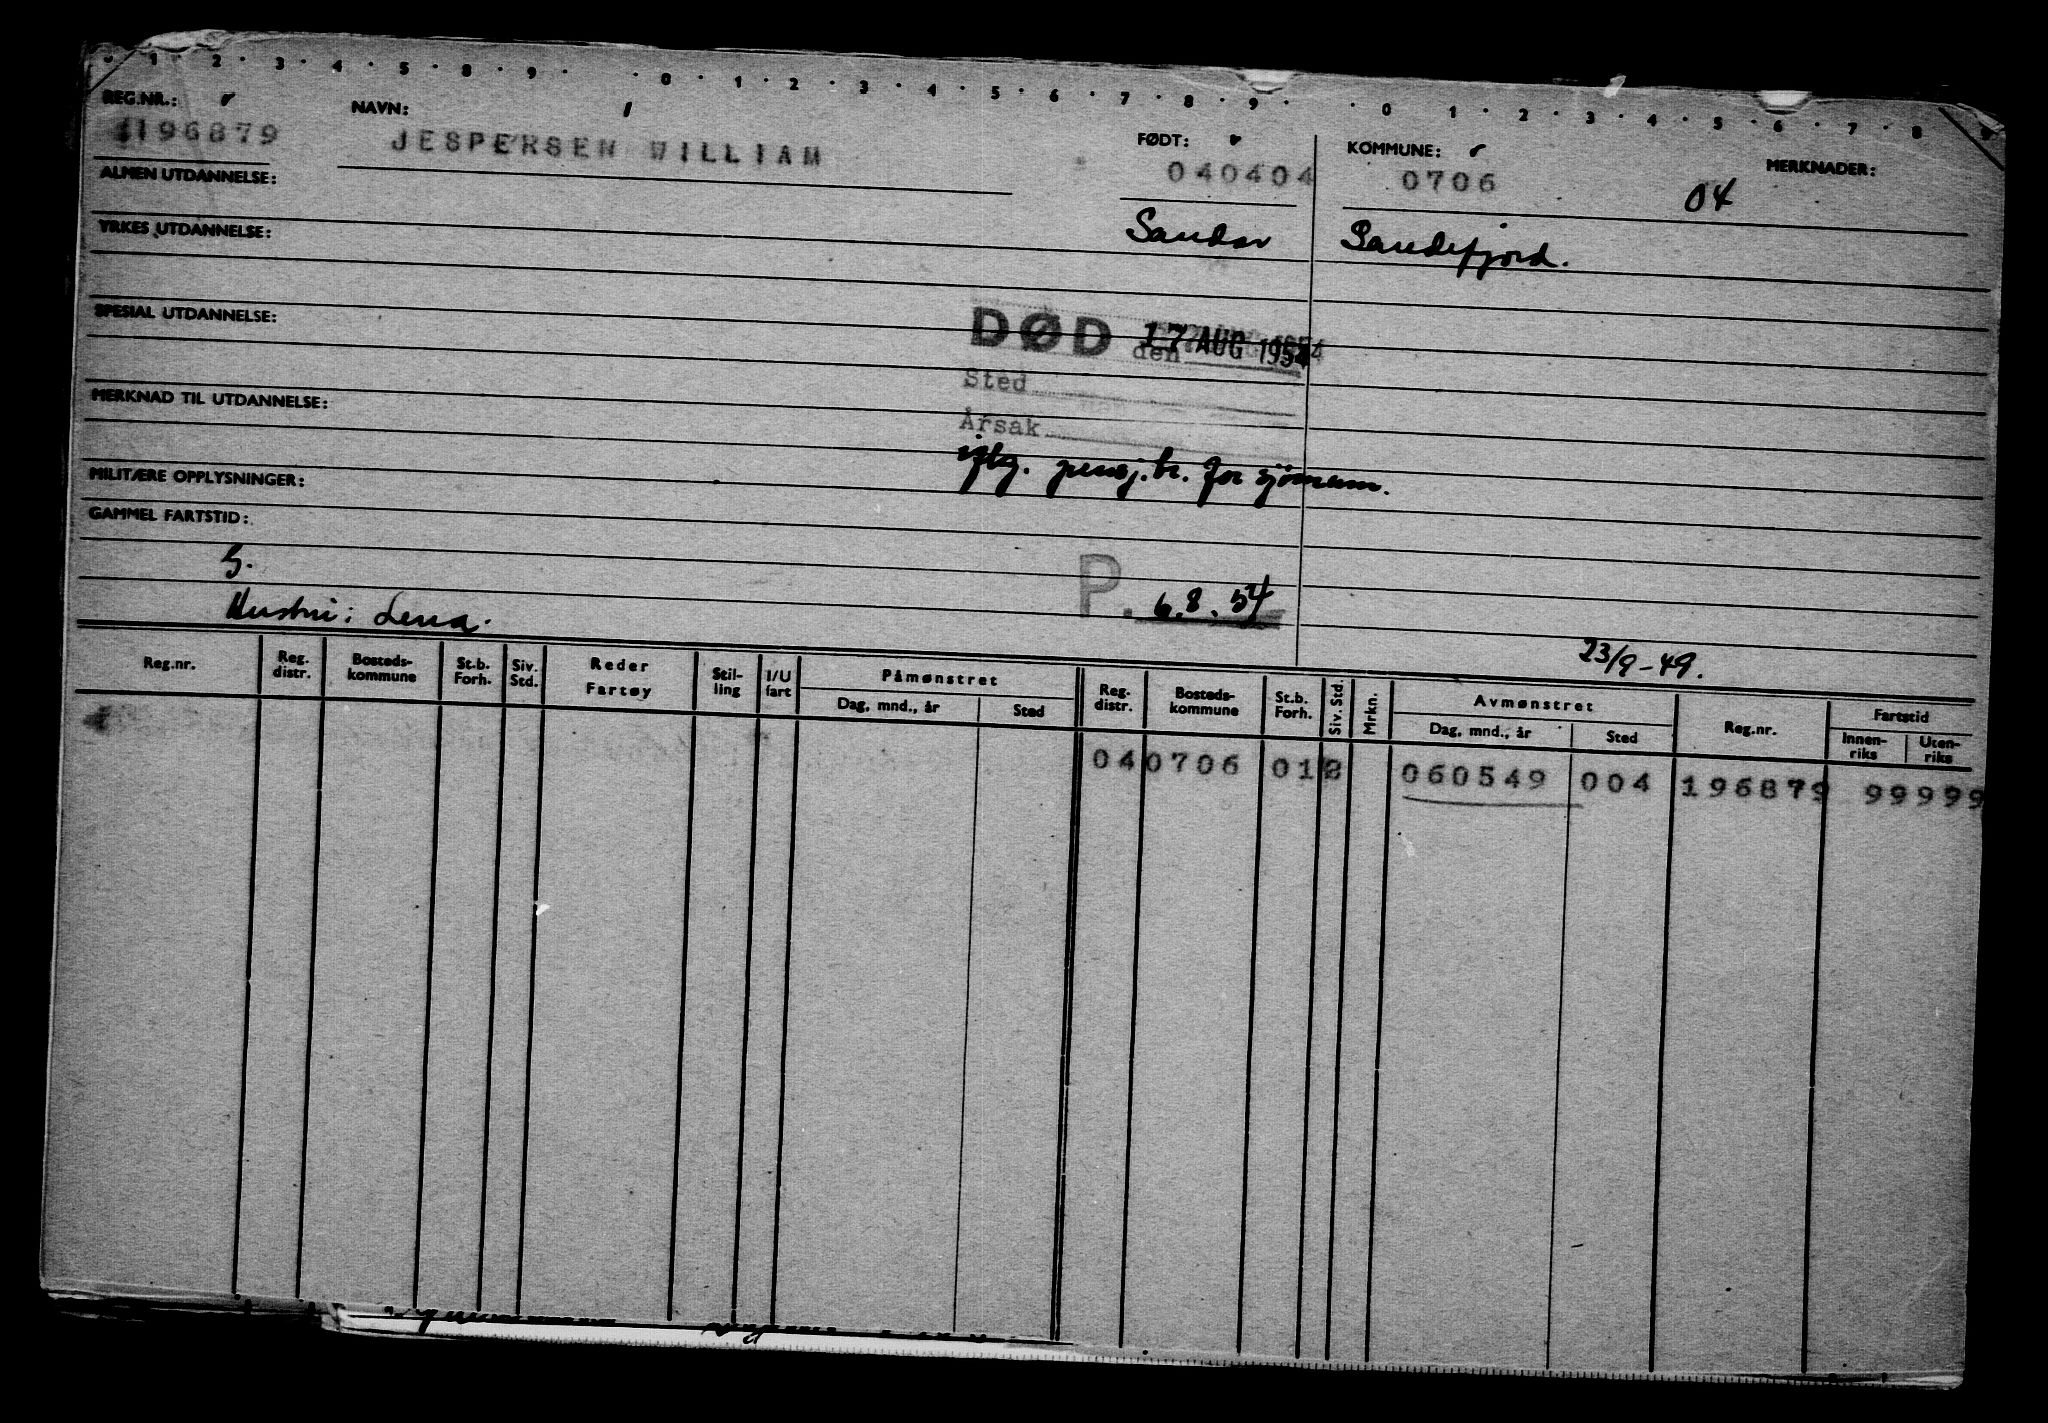 1 2 3 4 5 8 9 0 1 2 3 4 5 6 7 8 9 0 1 2 3 4 5 6 7 8 9
REG.NR.: NAVN: FØDT: KOMMUNE: MERKNADER:
196879 JESPERSEN WILLIAM 040404 0706 04
ALMEN UTDANNELSE:
Sandar Sandefjord.
YRKES UTDANNELSE:
SPESIAL UTDANNELSE:
DØD den 17 AUG 1954
Sted
MERKNAD TIL UTDANNELSE:
Årsak
iflg. pensj.br. for sjömenn.
MILITÆRE OPPLYSNINGER:
GAMMEL FARTSTID:
P. 6.8.54
Hustru: Lena.
23/9-49.
Reg.nr. Reg. distr. Bosteds-kommune St.b. Forh. Siv. Std. Reder Fartøy Stil-ling I/U fart Påmønstret Dag, mnd., år Sted Reg. distr. Bosteds-kommune St.b. Forh. Siv. Std. Mrkn. Avmønstret Dag, mnd., år Sted Reg.nr. Fartstid Innen-riks Uten-riks
04 0706 01 2 060549 004 196879 99999